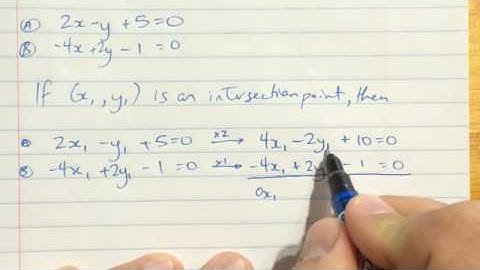 Ⓐ 2x - y + 5 = 0
Ⓑ -4x + 2y - 1 = 0
If (x₁, y₁) is an intersection point, then
Ⓐ 2x₁ - y₁ + 5 = 0 ×2→ 4x₁ - 2y₁ + 10 = 0
Ⓑ -4x₁ + 2y₁ - 1 = 0 ×1→ -4x₁ + 2y - 1 = 0
0x₁